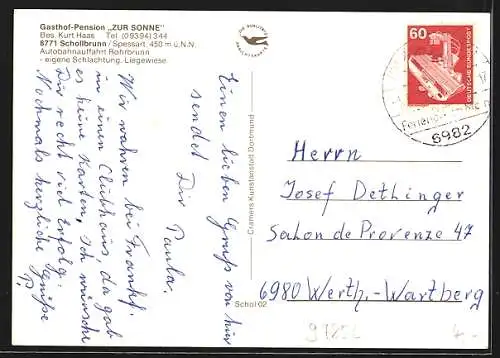 Gasthof-Pension „ZUR SONNE"
Bes. Kurt Haas Tel. (09394) 344
8771 Schollbrunn / Spessart, 450 m ü.N.N.
Autobahnauffahrt Rohrbrunn
- eigene Schlachtung, Liegewiese
Einen lieben Gruß von hier
sendet Dir Paula.
Wir wahren bei Frankf.
in einen Clubhaus, da gab
es keine Karten, ich wünsche
Dir recht viel Erfolg.
Nochmals herzliche Grüße
P.
Cramers Kunstanstalt Dortmund
Schol 02
60
DEUTSCHE BUNDESPOST
6982
Herrn
Josef Detlinger
Salon de Provenze 47
6980 Werth.-Wartberg